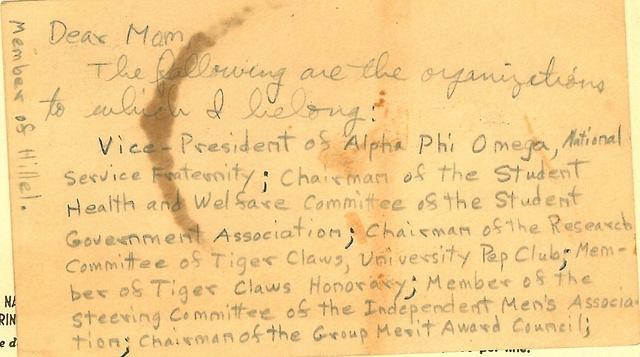 Dear Mom
The following are the organizations
to which I belong:
Vice-President of Alpha Phi Omega, National
Service Fraternity; Chairman of the Student
Health and Welfare Committee of the Student
Government Association; Chairman of the Research
Committee of Tiger Claws, University Pep Club; Mem-
ber of Tiger Claws Honorary; Member of the
steering Committee of the Independent Men's Associa-
tion; Chairman of the Group Merit Award Council;
Member of Hillel.
NA
RIN
e d
per line.